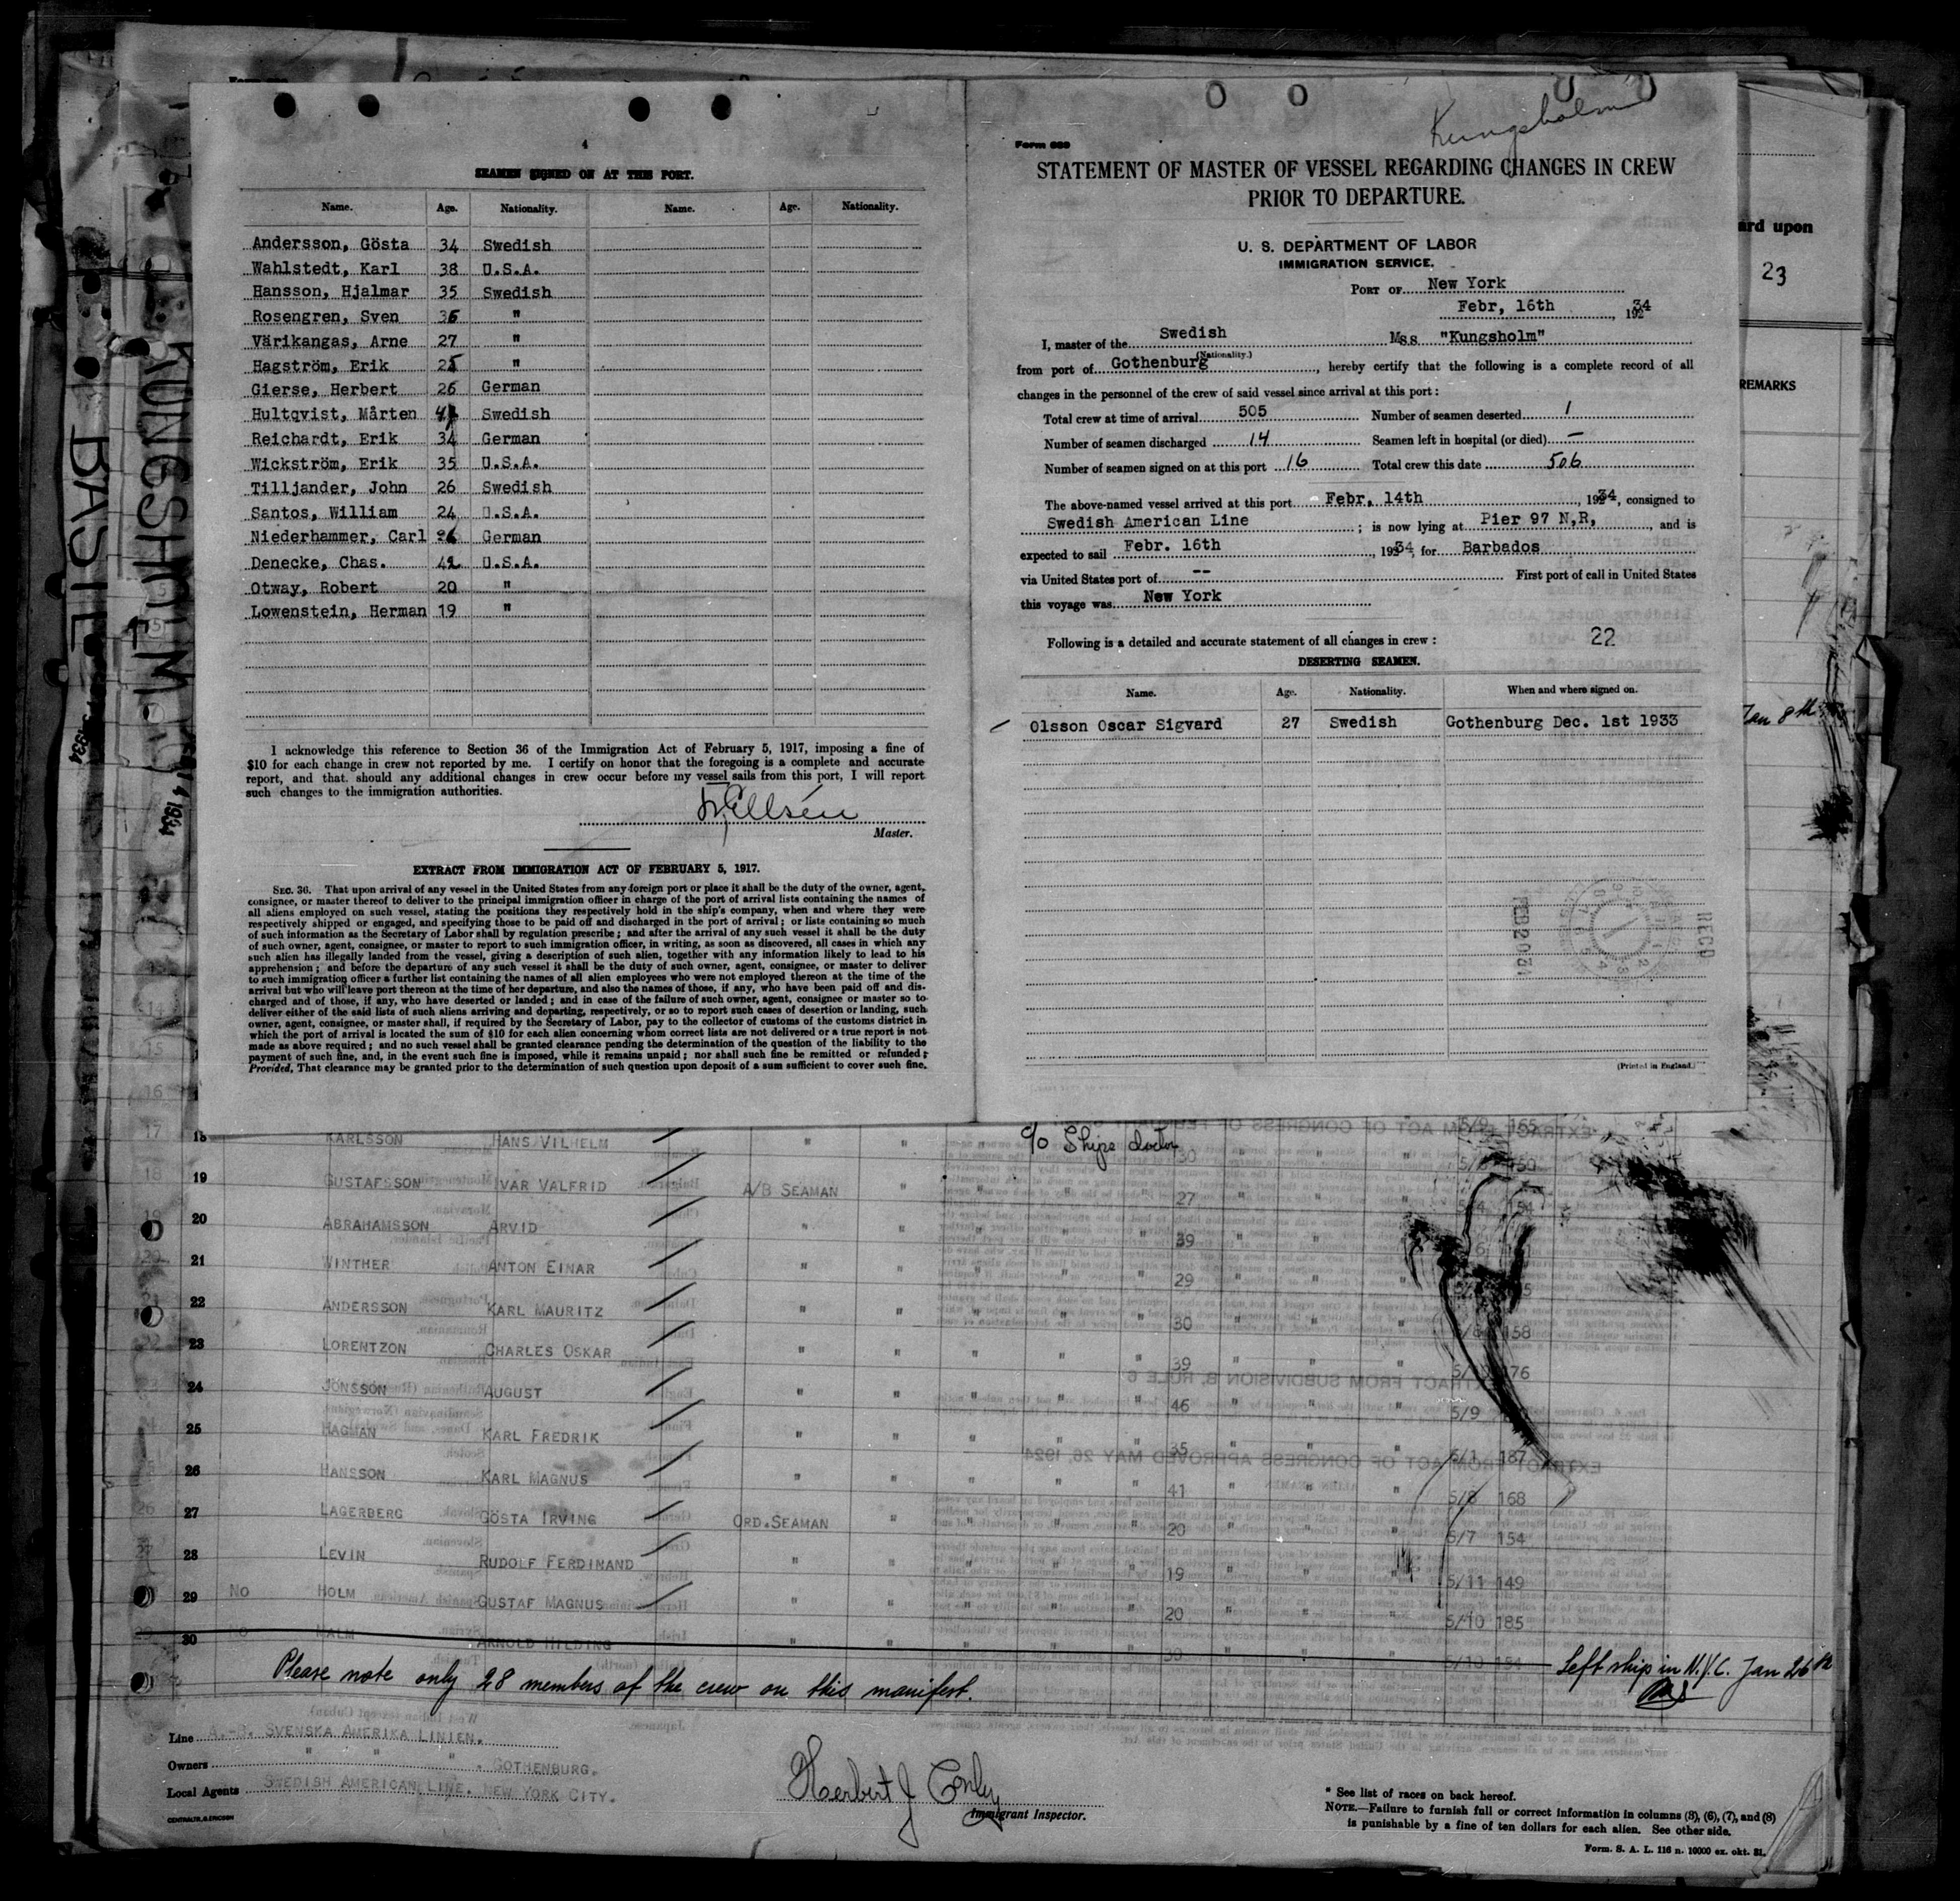 4
SEAMEN SIGNED ON AT THIS PORT.
Name. Age. Nationality. Name. Age. Nationality.
Andersson, Gösta 34 Swedish
Wahlstedt, Karl 38 U.S.A.
Hansson, Hjalmar 35 Swedish
Rosengren, Sven 36 "
Värikangas, Arne 27 "
Hagström, Erik 25 "
Gierse, Herbert 26 German
Hultqvist, Mårten Swedish
Reichardt, Erik 34 German
Wickström, Erik 35 U.S.A.
Tilljander, John 26 Swedish
Santos, William 24 U.S.A.
Niederhammer, Carl 26 German
Denecke, Chas. 42 U.S.A.
Otway, Robert 20 "
Lowenstein, Herman 19 "
I acknowledge this reference to Section 36 of the Immigration Act of February 5, 1917, imposing a fine of
$10 for each change in crew not reported by me. I certify on honor that the foregoing is a complete and accurate
report, and that should any additional changes in crew occur before my vessel sails from this port, I will report
such changes to the immigration authorities.
Master.
EXTRACT FROM IMMIGRATION ACT OF FEBRUARY 5, 1917.
SEC. 36. That upon arrival of any vessel in the United States from any foreign port or place it shall be the duty of the owner, agent,
consignee, or master thereof to deliver to the principal immigration officer in charge of the port of arrival lists containing the names of
all aliens employed on such vessel, stating the positions they respectively hold in the ship's company, when and where they were
respectively shipped or engaged, and specifying those to be paid off and discharged in the port of arrival; or lists containing so much
of such information as the Secretary of Labor shall by regulation prescribe; and after the arrival of any such vessel it shall be the duty
of such owner, agent, consignee, or master to report to such immigration officer, in writing, as soon as discovered, all cases in which any
such alien has illegally landed from the vessel, giving a description of such alien, together with any information likely to lead to his
apprehension; and before the departure of any such vessel it shall be the duty of such owner, agent, consignee, or master to deliver
to such immigration officer a further list containing the names of all alien employees who were not employed thereon at the time of the
arrival but who will leave port thereon at the time of her departure, and also the names of those, if any, who have been paid off and dis-
charged and of those, if any, who have deserted or landed; and in case of the failure of such owner, agent, consignee or master so to
deliver either of the said lists of such aliens arriving and departing, respectively, or so to report such cases of desertion or landing, such
owner, agent, consignee, or master shall, if required by the Secretary of Labor, pay to the collector of customs of the customs district in
which the port of arrival is located the sum of $10 for each alien concerning whom correct lists are not delivered or a true report is not
made as above required; and no such vessel shall be granted clearance pending the determination of the question of the liability to the
payment of such fine, and, in the event such fine is imposed, while it remains unpaid; nor shall such fine be remitted or refunded;
Provided, That clearance may be granted prior to the determination of such question upon deposit of a sum sufficient to cover such fine.
Kungsholm
Form 689
STATEMENT OF MASTER OF VESSEL REGARDING CHANGES IN CREW
PRIOR TO DEPARTURE.
U. S. DEPARTMENT OF LABOR
IMMIGRATION SERVICE.
PORT OF New York
Febr, 16th, 1934
I, master of the Swedish M.S.S. "Kungsholm"
(Nationality.)
from port of Gothenburg, hereby certify that the following is a complete record of all
changes in the personnel of the crew of said vessel since arrival at this port:
Total crew at time of arrival 505 Number of seamen deserted 1
Number of seamen discharged 14 Seamen left in hospital (or died) –
Number of seamen signed on at this port 16 Total crew this date 506
The above-named vessel arrived at this port Febr, 14th, 1934, consigned to
Swedish American Line; is now lying at Pier 97 N,R, and is
expected to sail Febr. 16th, 1934 for Barbados
via United States port of -- First port of call in United States
this voyage was New York
Following is a detailed and accurate statement of all changes in crew: 22
DESERTING SEAMEN.
Name. Age. Nationality. When and where signed on.
Olsson Oscar Sigvard 27 Swedish Gothenburg Dec. 1st 1933
REC'D
(Printed in England.)
ard upon
23
REMARKS
Jan 8th
KUNGSHOLM
BASIL
1934
18 KARLSSON HANS VILHELM " " c/o Ships doctor 30
19 GUSTAFSSON IVAR VALFRID A/B SEAMAN " 27
20 ABRAHAMSSON ARVID " " 39
21 WINTHER ANTON EINAR " " 29
22 ANDERSSON KARL MAURITZ " " 30 158
23 LORENTZON CHARLES OSKAR " " 39 176
24 JONSSON AUGUST " " 46 5/9
25 HAGMAN KARL FREDRIK " " 35 5/1 187
26 HANSSON KARL MAGNUS " " 41 5/8 168
27 LAGERBERG GÖSTA IRVING ORD. SEAMAN " 20 5/7 154
28 LEVIN RUDOLF FERDINAND " " 19 5/11 149
29 No HOLM GUSTAF MAGNUS " " 20 5/10 185
30 No MALM ARNOLD HILDING " " 30 5/10 Left ship in N.Y.C. Jan 26th
Please note only 28 members of the crew on this manifest.
Line A.-B. SVENSKA AMERIKA LINIEN.
Owners " " " . GOTHENBURG.
Local Agents SWEDISH AMERICAN LINE. NEW YORK CITY.
Herbert J Conley
Immigrant Inspector.
* See list of races on back hereof.
NOTE.—Failure to furnish full or correct information in columns (3), (6), (7), and (8)
is punishable by a fine of ten dollars for each alien. See other side.
Form. S. A. L. 116 n. 10000 ex. okt. 31.